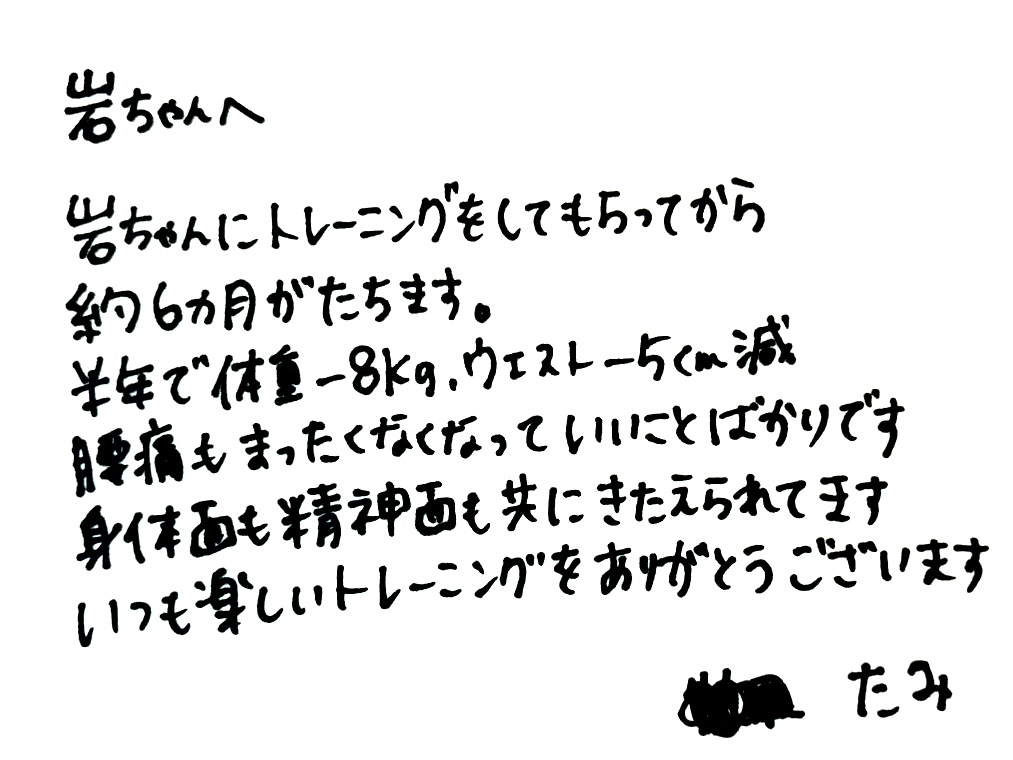 岩ちゃんへ
岩ちゃんにトレーニングをしてもらってから
約6カ月がたちます。
半年で体重-8Kg.ウエスト-5cm減
腰痛もまったくなくなっていいことばかりです
身体面も精神面も共にきたえられてます
いつも楽しいトレーニングをありがとうございます
たみ